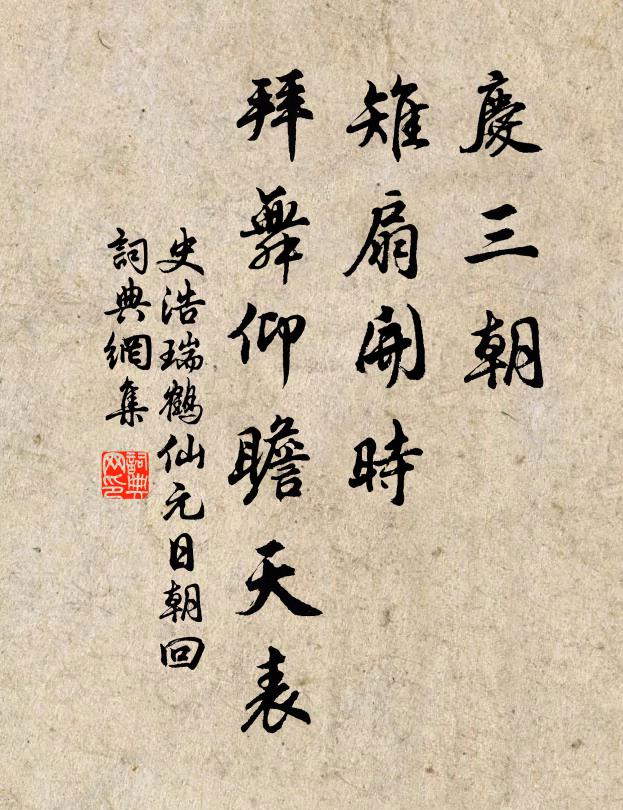 慶三朝
雉扇開時
拜舞仰瞻天表
史浩瑞鶴仙元日朝回
詞典網集
詞典網印